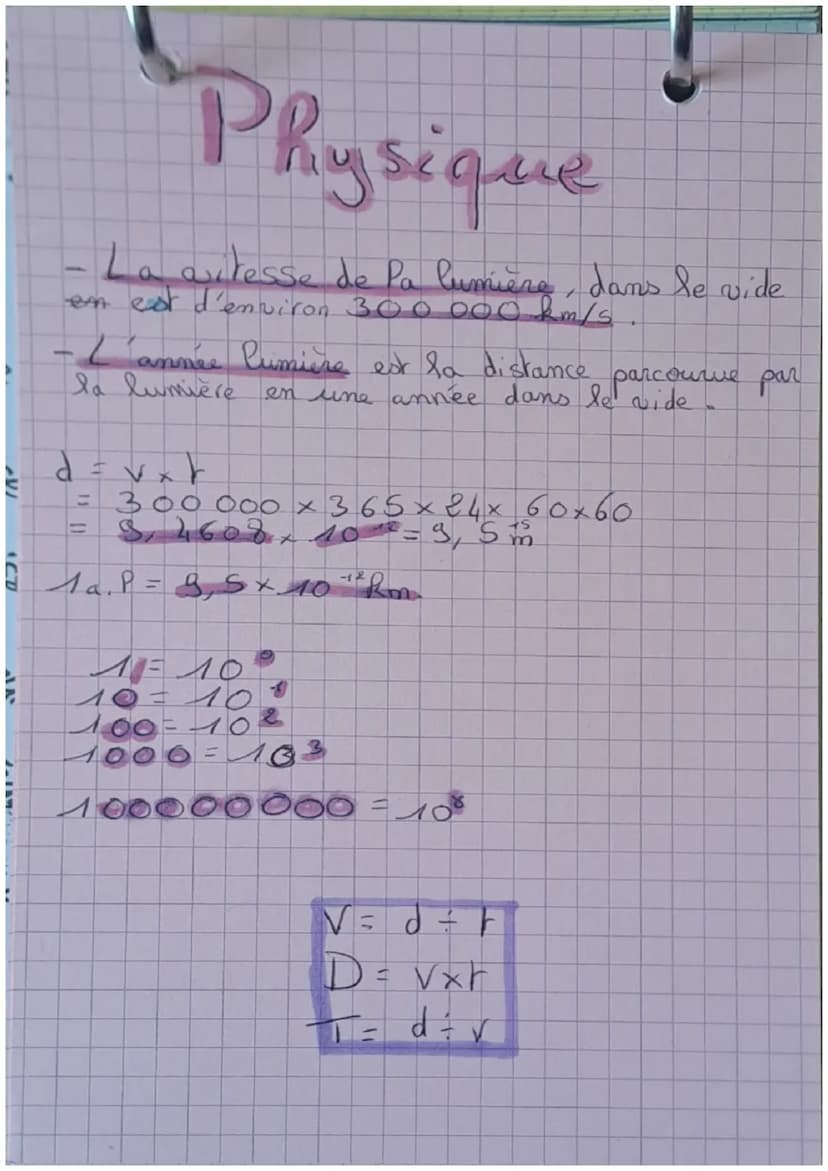 Physique
- La vitesse de la lumière, dans le vide
en est d'environ 300 000 km/s.
- L'année lumière est la distance parcourue par
la lumière en une année dans le vide.
d = v x t
= 300 000 x 365 x 24 x 60x60
= 9,4608 x 10⁻¹² = 9,5 ¹⁵ m
1 a.l = 9,5 x 10⁻¹² km
1 = 10⁰
10 = 10¹
100 = 10²
1000 = 10³
100000000 = 10⁸
V = d ÷ t
D = v x t
T = d ÷ v